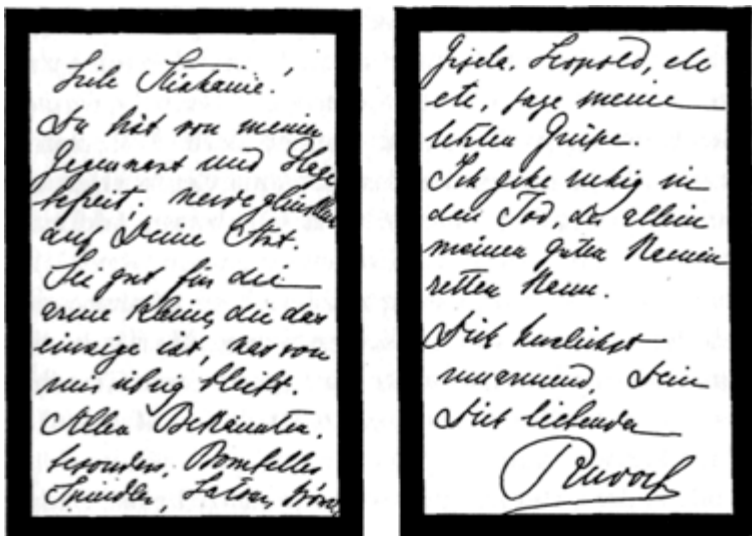 Liebe Stephanie!
Du bist von meiner
Gegenwart und Plage
befreit; werde glücklich
auf Deine Art.
Sei gut für die
arme Kleine, die das
einzige ist, was von
mir übrig bleibt.
Allen Bekannten,
besonders, Bombelles
Spindler, Latour, Wowo,
Gisela, Leopold, etc
etc, sage meine
letzten Grüße.
Ich gehe ruhig in
den Tod, der allein
meinen guten Namen
retten kann.
Dich herzlichst
umarmend, Dein
Dich liebender
Rudolf